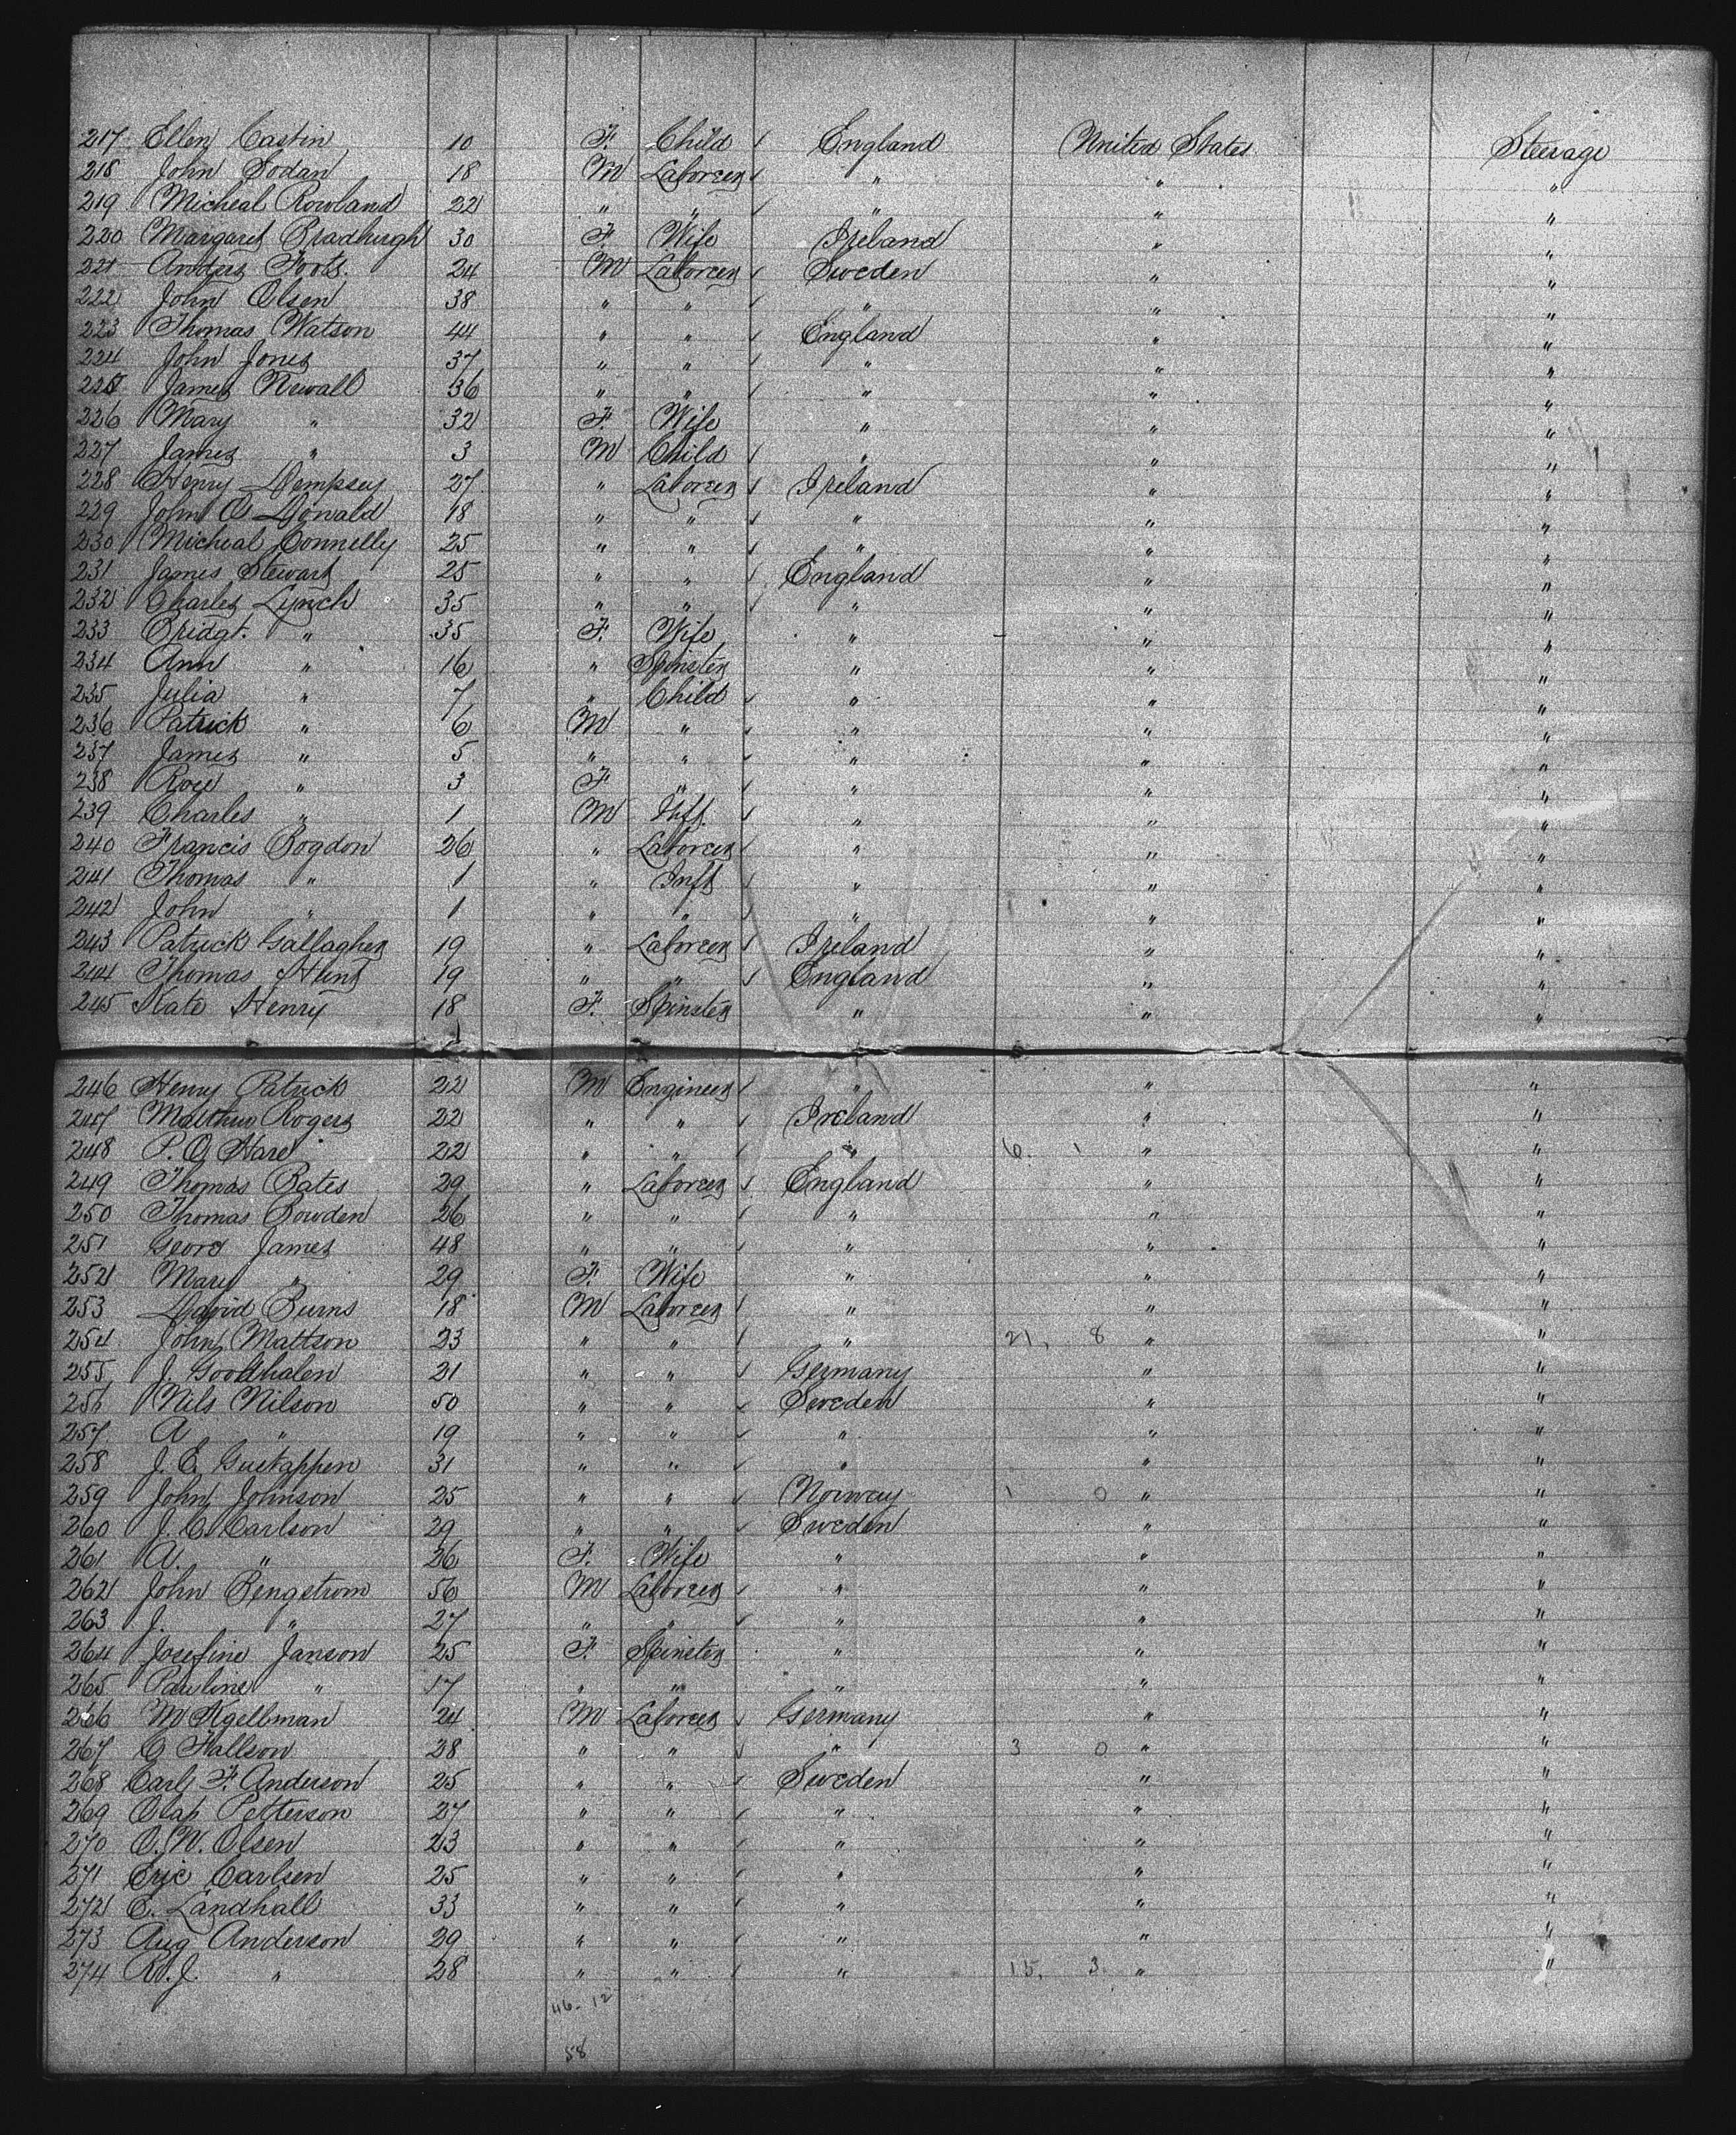 217 Ellen Castin 10 F. Child England United States Steerage
218 John Sodan 18 M Laborer " " "
219 Micheal Rowland 22 " " " " "
220 Margaret Bradburgh 30 F. Wife Ireland " "
221 Anders Foots. 24 M Laborer Sweden " "
222 John Olsen 38 " " " " "
223 Thomas Watson 44 " " England " "
224 John Jones 37 " " " " "
225 James Newall 36 " " " " "
226 Mary " 32 F. Wife " " "
227 James " 3 M Child " " "
228 Henry Dempsey 27 " Laborer Ireland " "
229 John O Donald 18 " " " " "
230 Micheal Connelly 25 " " " " "
231 James Stewart 25 " " England " "
232 Charles Lynch 35 " " " " "
233 Bridgt. " 35 F. Wife " " "
234 Ann " 16 " Spinster " " "
235 Julia " 7 " Child " " "
236 Patrick " 6 M " " " "
237 James " 5 " " " " "
238 Rose " 3 F " " " "
239 Charles " 1 M Inft. " " "
240 Francis Bogdon 26 " Laborer " " "
241 Thomas " 1 " Inft " " "
242 John " 1 " " " " "
243 Patrick Gallagher 19 " Laborer Ireland " "
244 Thomas Hunt 19 " " England " "
245 Kate Henry 18 F. Spinster " " "
246 Henry Patrick 22 M Engineer " " "
247 Matthew Rogers 22 " " Ireland " "
248 P. O Hare 22 " " " 6. 1 " "
249 Thomas Bates 29 " Laborer England " "
250 Thomas Bowden 26 " " " " "
251 Georg James 48 " " " " "
252 Mary " 29 F. Wife " " "
253 David Burns 18 M Laborer " " "
254 John Mattson 23 " " " 21, 8 " "
255 J. Goodhalen 21 " " Germany " "
256 Nils Nilson 50 " " Sweden " "
257 A " 19 " " " " "
258 J. E. 31 " " " " "
259 John Johnson 25 " " Norway 1 0 " "
260 J. C. Carlson 29 " " Sweden " "
261 A. " 26 F. Wife " " "
262 John Bengstrom 56 M Laborer " " "
263 J. " 27 " " " " "
264 Josefine Janson 25 F. Spinster " " "
265 Pauline " 17 " " " " "
266 M Kjellman 24 M Laborer Germany " "
267 C Hallson 28 " " " 3 0 " "
268 Carl F. Anderson 25 " " Sweden " "
269 Olap Petterson 27 " " " " "
270 O. W. Olsen 23 " " " " "
271 Eric Carlsen 25 " " " " "
272 E. Landhall 33 " " " " "
273 Aug Anderson 29 " " " " "
274 J. " 28 " " " 15, 3 " "
46-12
58